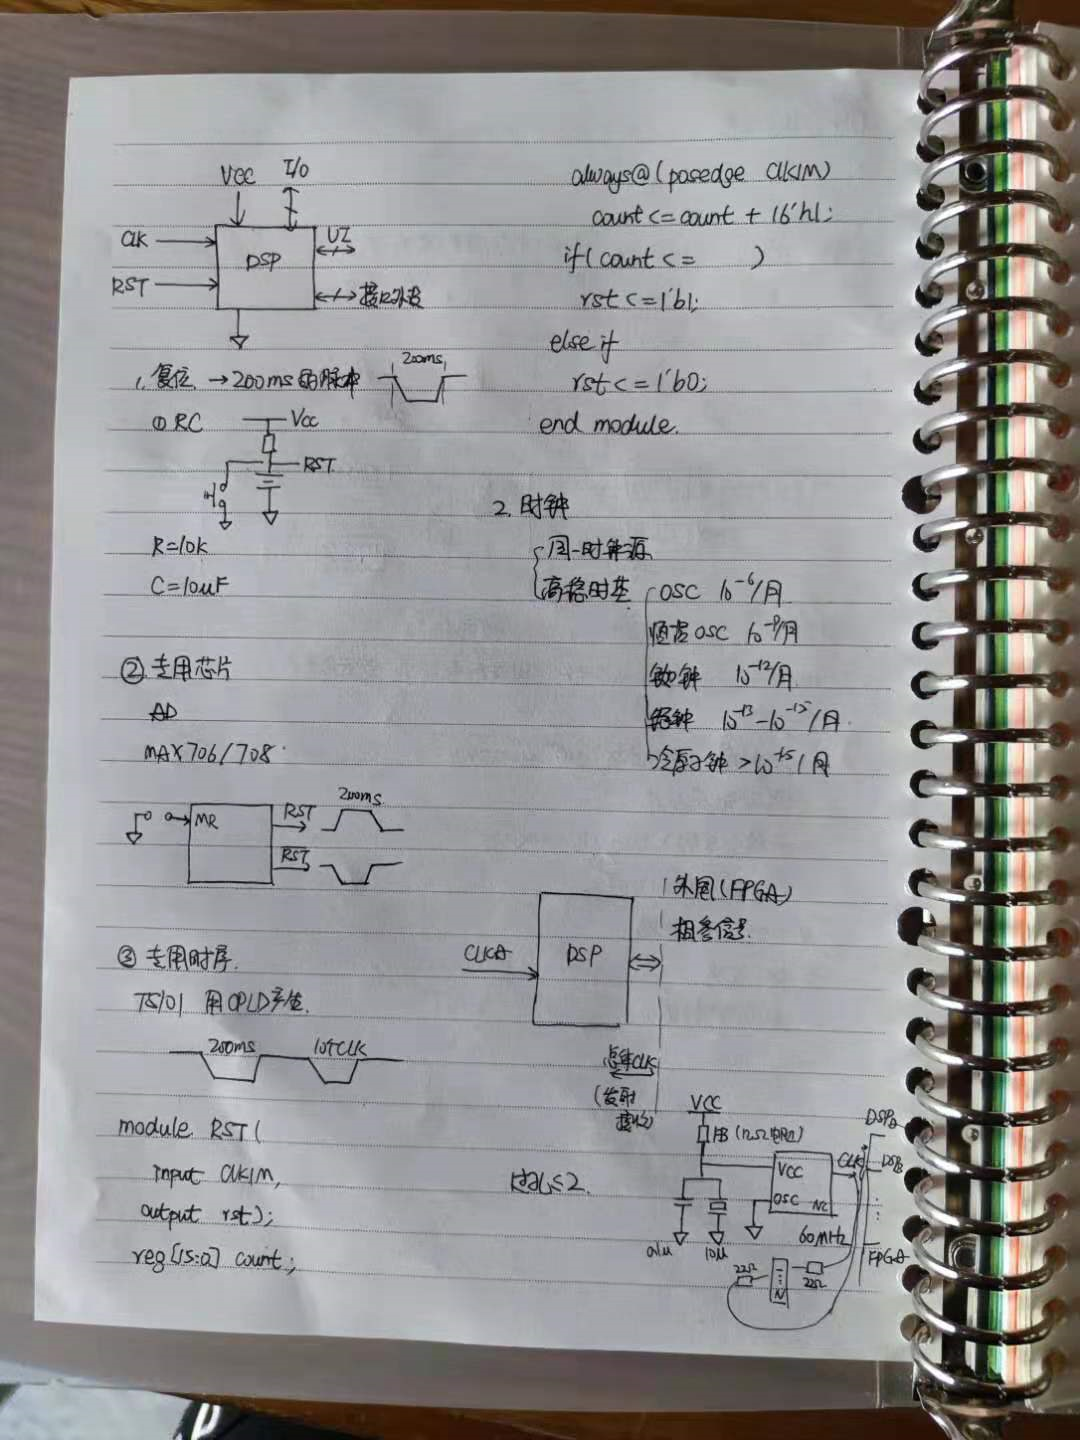 VCC I/O
CLK
DSP
UI
RST
接口外设
1. 复位 → 200ms的脉冲 200ms
① RC
VCC
RST
R=10K
C=10uF
② 专用芯片
AD
MAX706/708
MR
RST 200ms
RST
③ 专用时序.
TS101 用CPLD产生.
200ms
module RST(
input CLK1M,
output rst);
reg[15:0] count;
always@(posedge CLK1M)
count<=count + 16'h1;
if(count<= )
rst<=1'b1;
else if
rst<=1'b0;
end module.
2. 时钟
同一时钟源
高稳时基
OSC 10⁻⁶/月
恒温OSC 10⁻⁹/月
铷钟 10⁻¹²/月
铯钟 10⁻¹³-10⁻¹⁵/月.
冷原子钟 >10⁻¹⁵/月
外围(FPGA)
相参信号.
DSP
CLK
(发射
接收)
VCC
FB
VCC
OSC NC
CLK
DSP
60MHz
FPGA
0.1u 10u
22Ω
22Ω
N